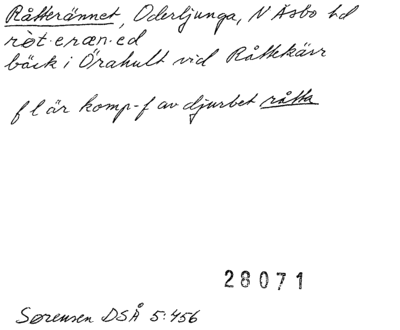 Råtterännet, Oderljunga, N Åsbo hd
rȯt·eræn·ed
bäck i Örahult vid Råttekärr
f l är komp-f av djurbet råtta
28071
Sørensen DSÅ 5:456